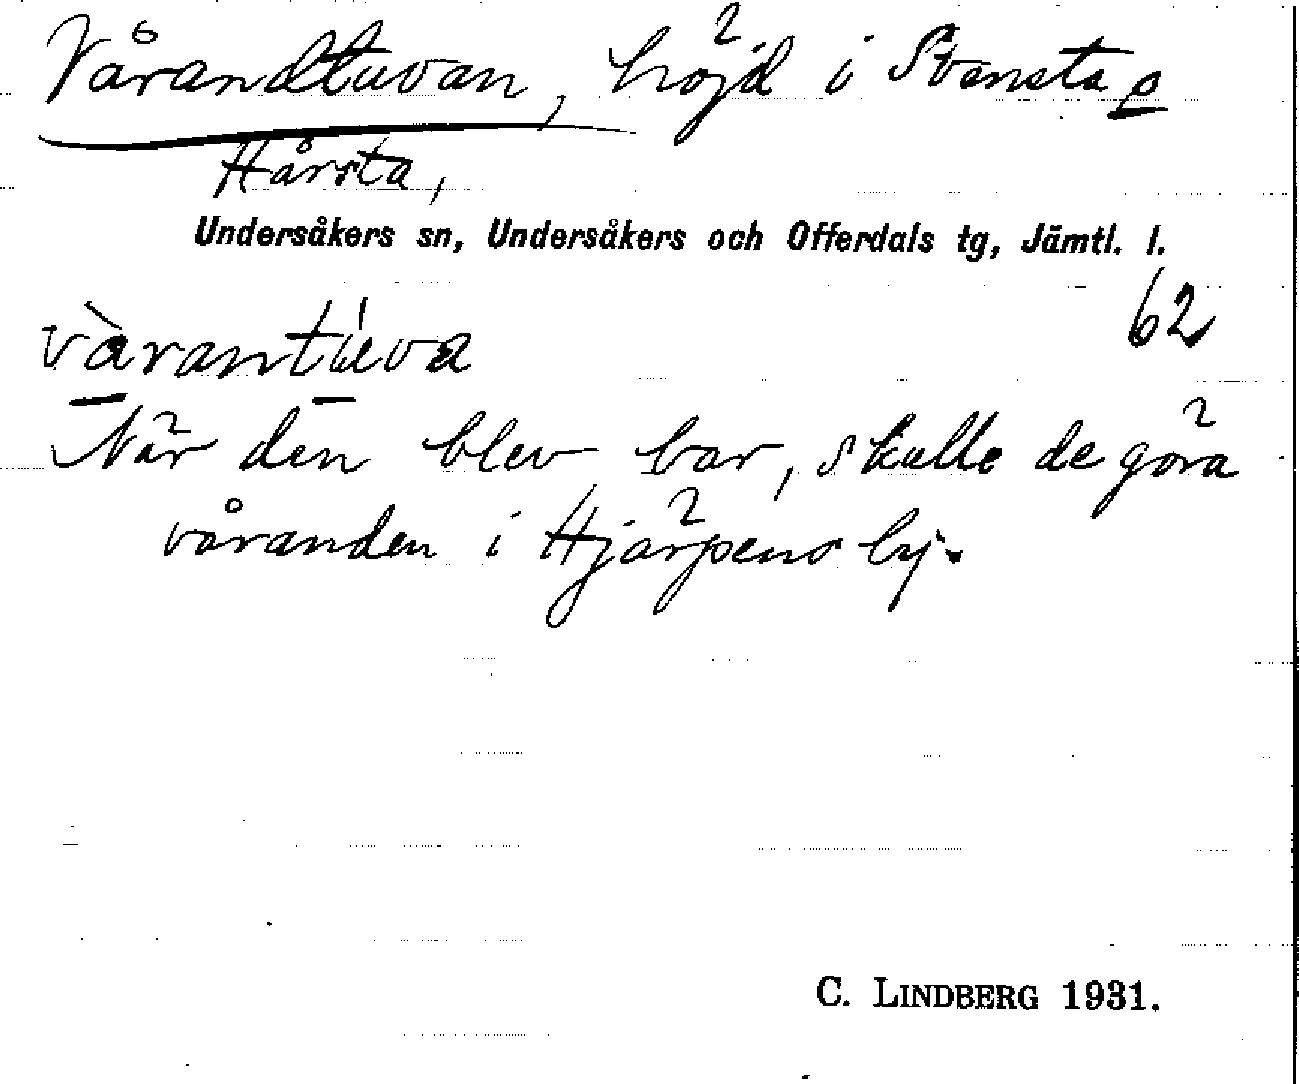 Vårandtuvan, höjd i Svensta o
Hårsta,
Undersåkers sn, Undersåkers och Offerdals tg, Jämtl. l.
62
vàrantúva
När den blev bar, skulle de göra
våranden i Hjärpens by.
C. LINDBERG 1931.